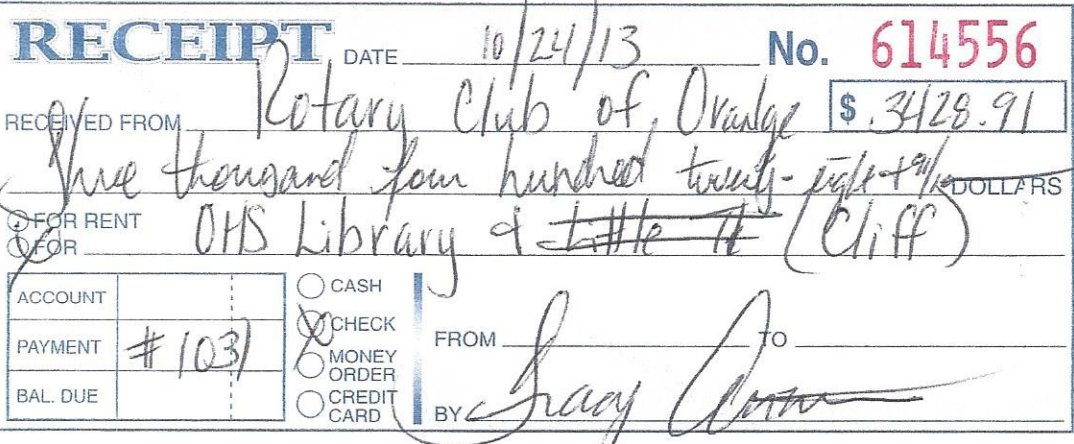 RECEIPT DATE 10/24/13 No. 614556
RECEIVED FROM Rotary Club of Orange $ 3428.91
Three thousand four hundred twenty-eight + 91/ DOLLARS
FOR RENT
FOR OHS Library & Little It (Cliff)
ACCOUNT
PAYMENT #1031
BAL. DUE
CASH
CHECK
MONEY ORDER
CREDIT CARD
FROM TO
BY Tracy